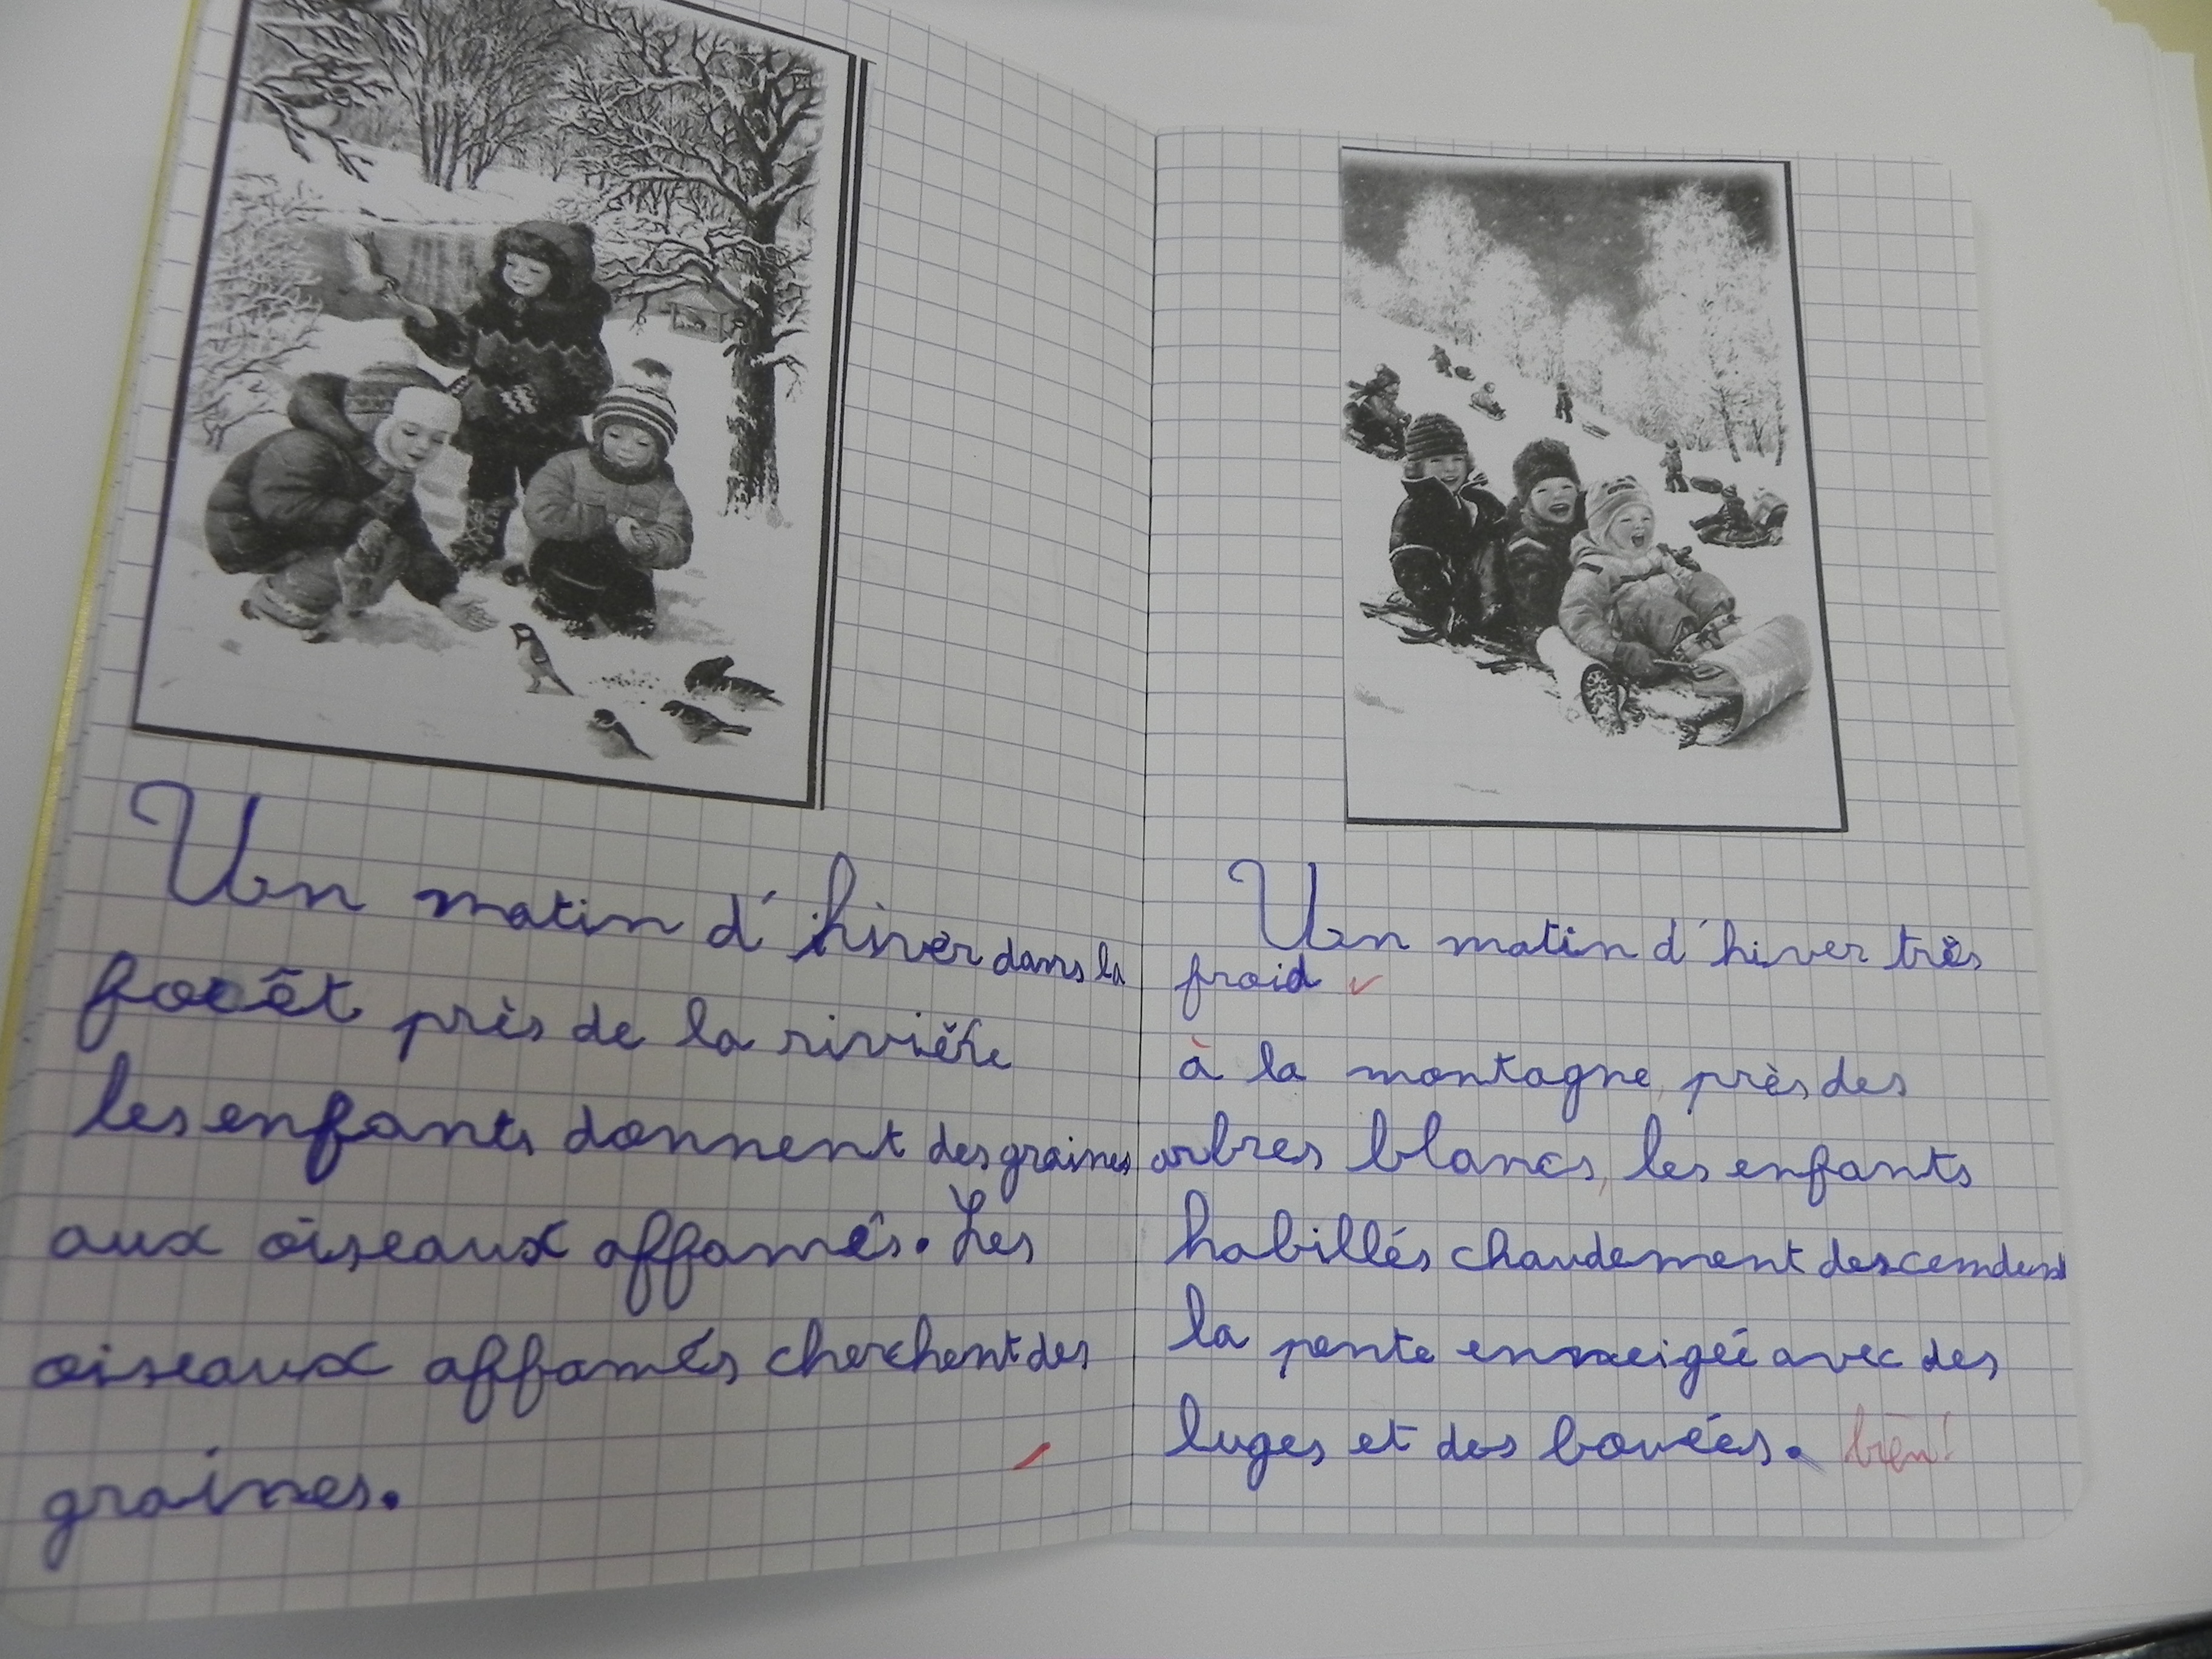 Un matin d'hiver dans la
forêt près de la rivière
les enfants donnent des graines
aux oiseaux affamés. Les
oiseaux affamés cherchent des
graines.
Un matin d'hiver très
froid
à la montagne, près des
arbres blancs, les enfants
habillés chaudement descendent
la pente enneigée avec des
luges et des bouées. bien!